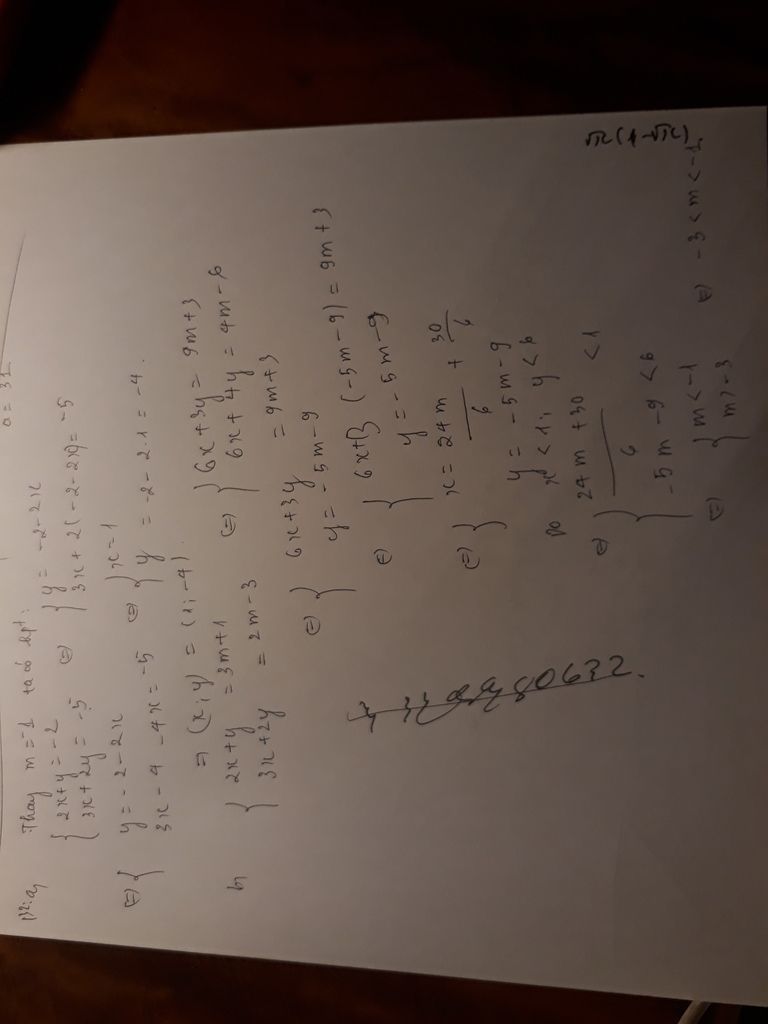 a = 31
B2: a, Thay m = -1 ta có hpt:
{ 2x + y = -2
3x + 2y = -5
(=) { y = -2 - 2x
3x + 2(-2 - 2x) = -5
(=) { y = -2 - 2x
3x - 4 - 4x = -5
(=) { x = 1
y = -2 - 2.1 = -4.
=) (x; y) = (1; -4).
b, { 2x + y = 3m + 1
3x + 2y = 2m - 3
(=) { 6x + 3y = 9m + 3
6x + 4y = 4m - 6
(=) { 6x + 3y = 9m + 3
y = -5m - 9
(=) { 6x + 3 (-5m - 9) = 9m + 3
y = -5m - 9
(=) { x = 24m/6 + 30/6
y = -5m - 9
Do x < 1; y < 6
=) { 24m + 30 / 6 < 1
-5m - 9 < 6
(=) { m < -1
m > -3
=) -3 < m < -1.
√x(1-√x)